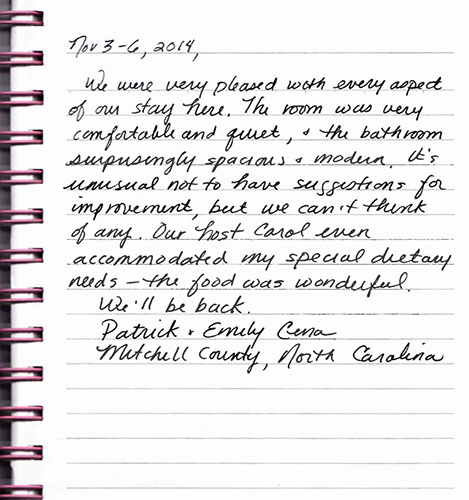 Nov 3-6, 2014,
We were very pleased with every aspect
of our stay here. The room was very
comfortable and quiet, & the bathroom
surprisingly spacious & modern. It's
unusual not to have suggestions for
improvement, but we can't think
of any. Our host Carol even
accommodated my special dietary
needs – the food was wonderful.
We'll be back.
Patrick & Emily Cena
Mitchell County, North Carolina